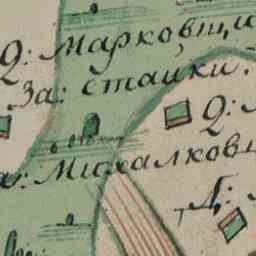 Д: Марковщи
За: стайки.
Д:
За: Михалкови
Д: